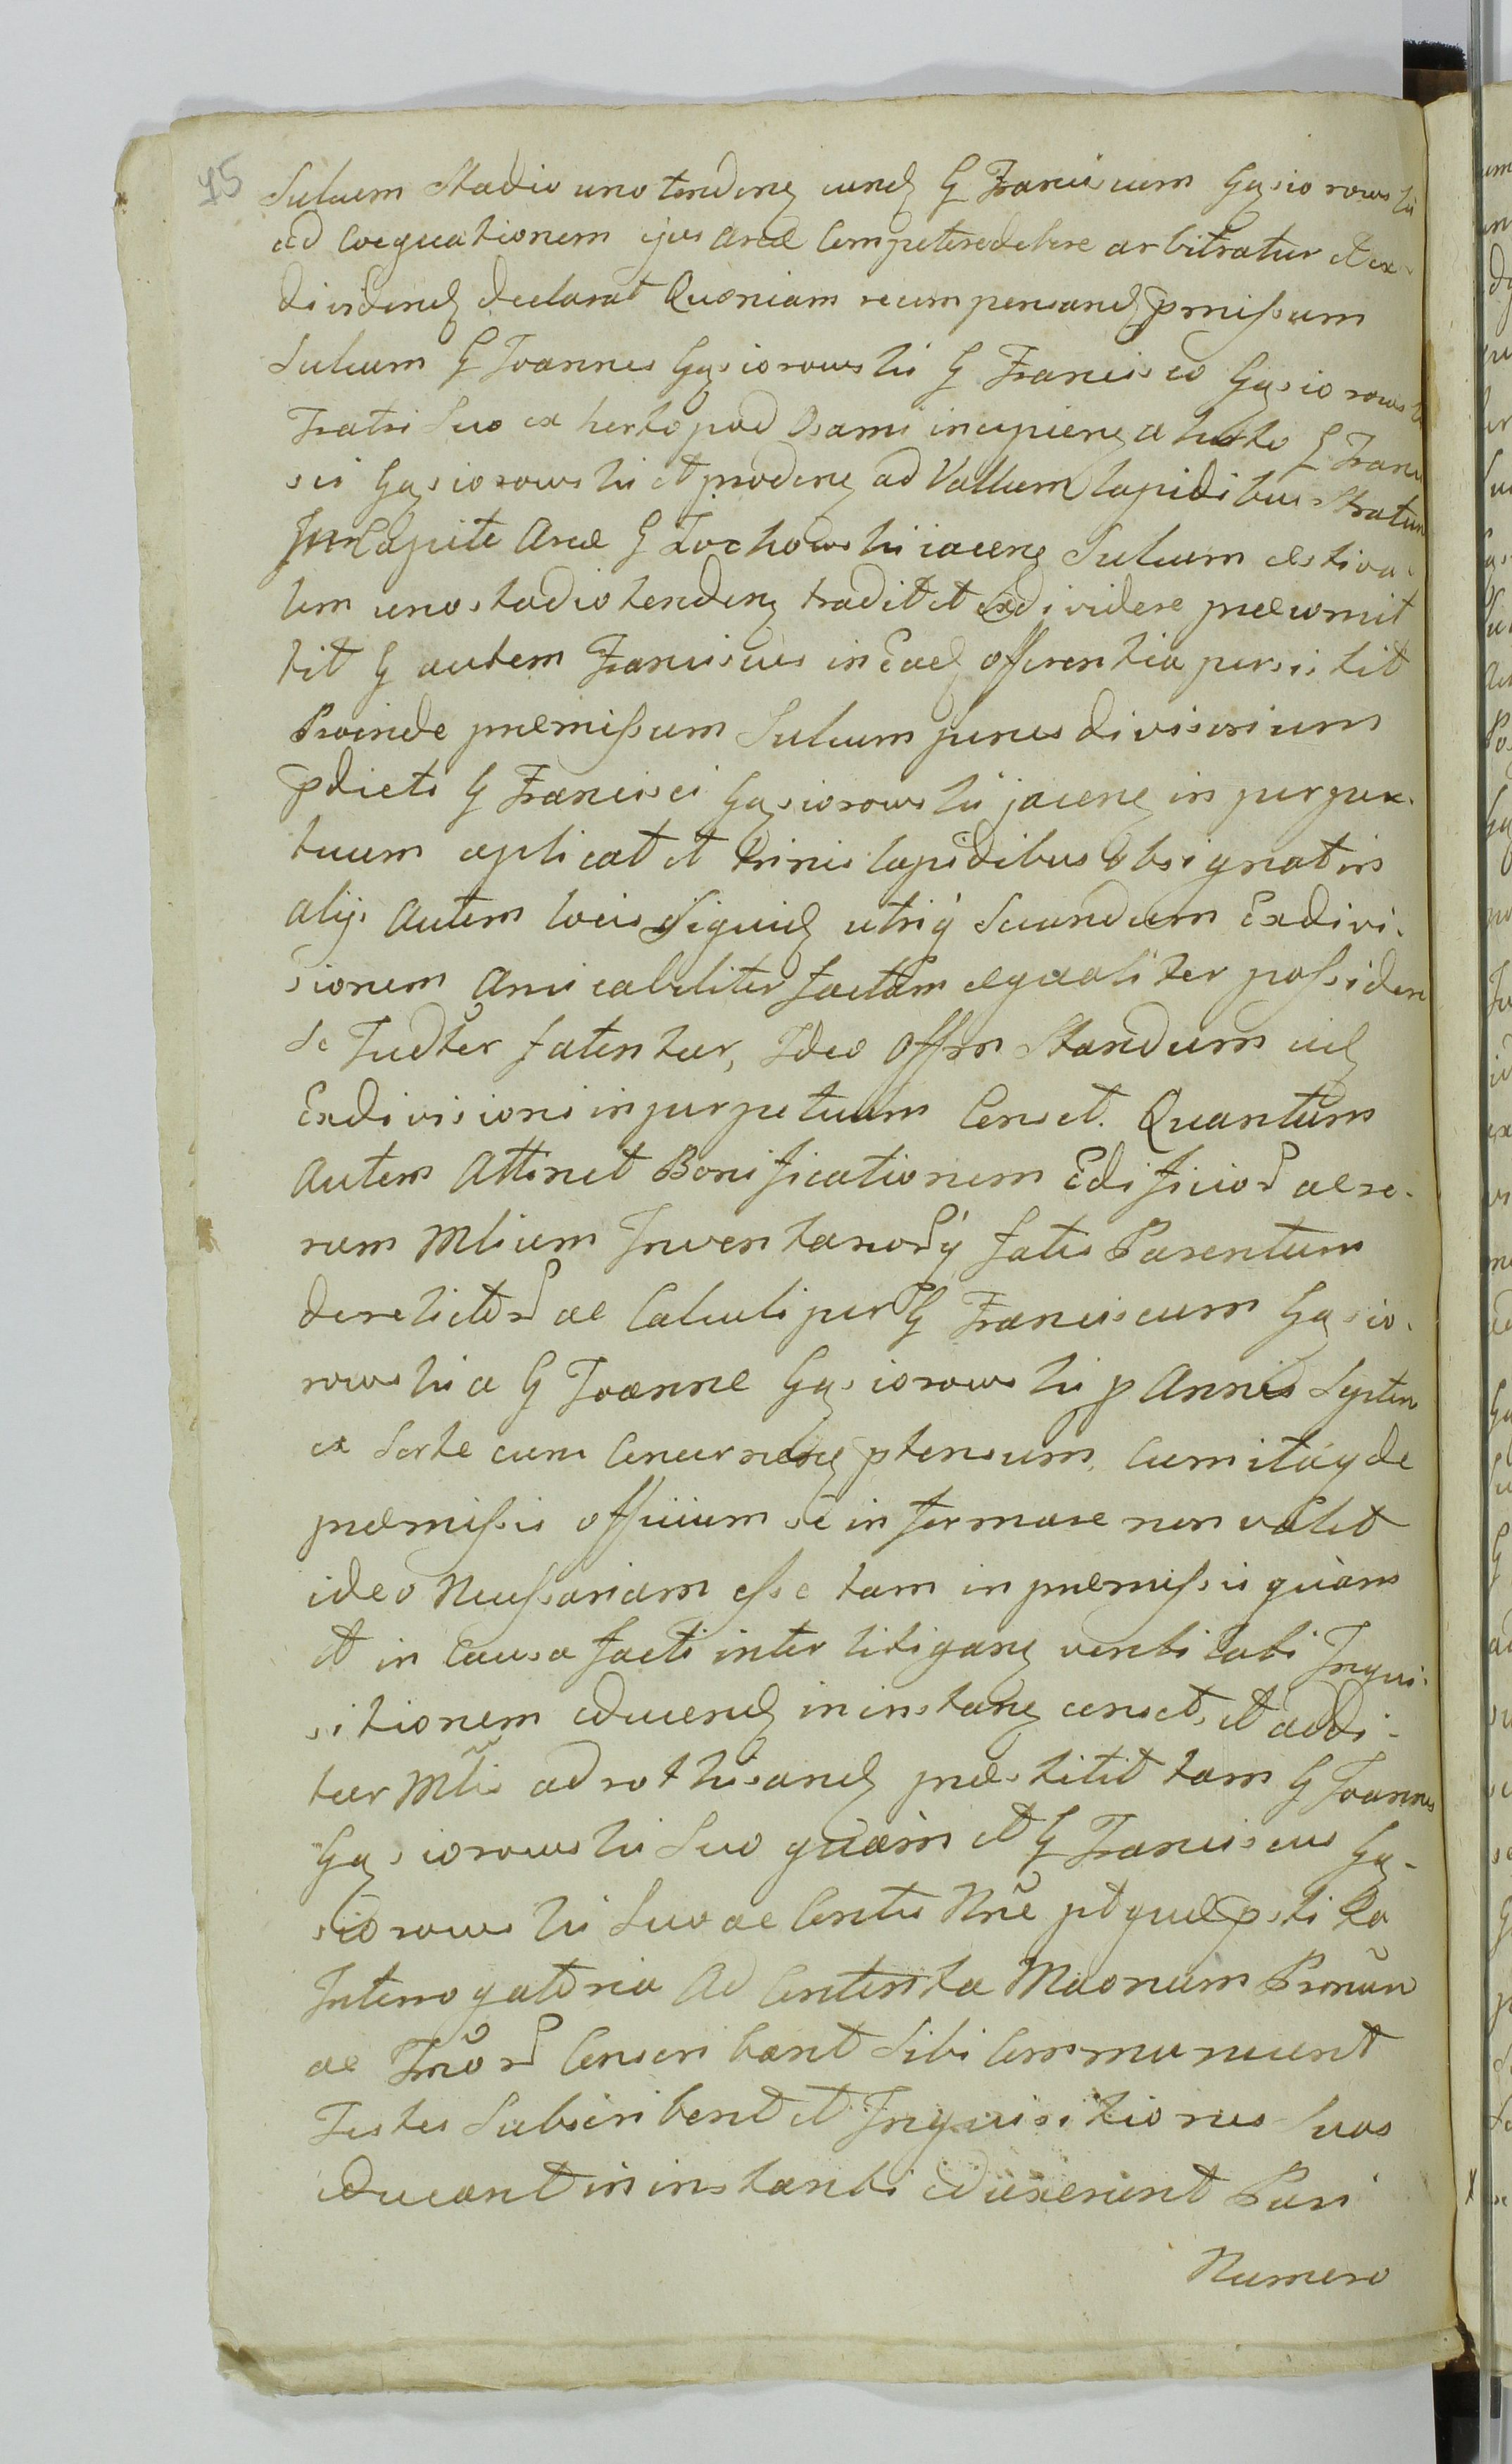 15
Sulcum Stadio uno tendenẹ eund G Franciscum Gąsiorowski
ad Coequationem ejus Areæ Competere debere arbitratur et ex-
dividend declarat Quoniam recumpensand pmissum
Sulcum G Joannes Gąsiorowski G Francisco Gąsiorowski
Fratri Suo ex horto pod Osami incipienẹ a horto G Franci
sci Gąsiorowski et prodenẹ ad Vallum lapidibus Stratum
in Capite Areæ G Zochowskii iacenẹ Sulcum æstiva-
lem uno stadio tendenẹ tradit et exdividere præcomit
tit G autem Franciscus in Ead offerentia persistit
Proinde præmissum Sulcum penes divisorium
pdicti G Francisci Gąsiorowskii jacenẹ in perpæ-
tuum aplicat et trinis lapidibus obsignat in
alijs autem locis Siquid utrique Secundum Exdivi-
sionem Amicabiliter factam æqualiter possidere
se Judter fatentur, Ideo Offm Standum eid
Exdivisioni in perpetuum Censet. Quantum
autem Attinet Bonificationem Edificior ac re-
rum Mlium Inventarior q fatis Parentum
derelictor ac Calculi per G Franciscum Gąsio-
rowski a G Joanne Gąsiorowski p Annis Septem
ex Sorte eum Concernenẹ ptensum, Cum itaq de
præmissis officium se informare non valet
ideo Necessariam esse tam in præmissis quàm
et in Causa facti inter litiganẹ ventilati Inqui-
sitionem educend in instanẹ censet, et addi-
tur Mlis ad rothisand præstitit tam G Joannes
Gąsiorowski Suo quàm et G Franciscus Gą-
siorowski Suo ac Contis Nne pt quæ psti ta
Interrogatoria ad Contenta Maonum Pronun
ac Jnor Conscribant Sibi Communicent
Testes Subscribent et Inquisitiones Suas
educant in instanti eduxerunt Pari
Numero